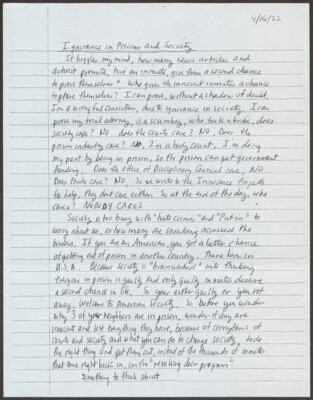 4/16/22
Ignorance in Prisons and Society
It boggles my mind, how many news articles and
activist promote, give an inmate, give them a second chance
to prove themselves. Who gives the innocent inmates a chance
to prove themselves? I can prove, without a shadow of doubt,
I'm a wrongful conviction, due to ignorance in society. I can
prove my trial attorney, is a scumbag, who took a bribe, does
society care? NO, does the courts care? NO, Does the
prison industry care? NO, I'm a body count. I'm doing
my part by being in prison, so the prison can get government
funding. Does the office of Disciplinary Counsel care, NO
Does Pride care? NO, So we write to the Innocence Projects
to help, they don't care either. So at the end of the day, who
cares? NOBODY CARES
Society is too busy with "hate crimes" and "Putin" to
worry about us, or how many are sneaking across the
borders. If you are an American, you got a better chance
of getting out of prison in another country. Than here in
U.S.A. Because society is "brainwashed" into thinking
everyone in prison is guilty and only guilty inmates deserve
a second chance in life. So your either guilty or you rot
away. Welcome to American Society. So before you wonder
why 3 of your neighbors are in prison, wonder if they are
innocent and lost everything they have, because of corruptions of
courts and society and what you can do to change society, to do
the right thing and get them out, instead of the thousands of inmates
that come right back in, on the "revolving door program".
Something to think about